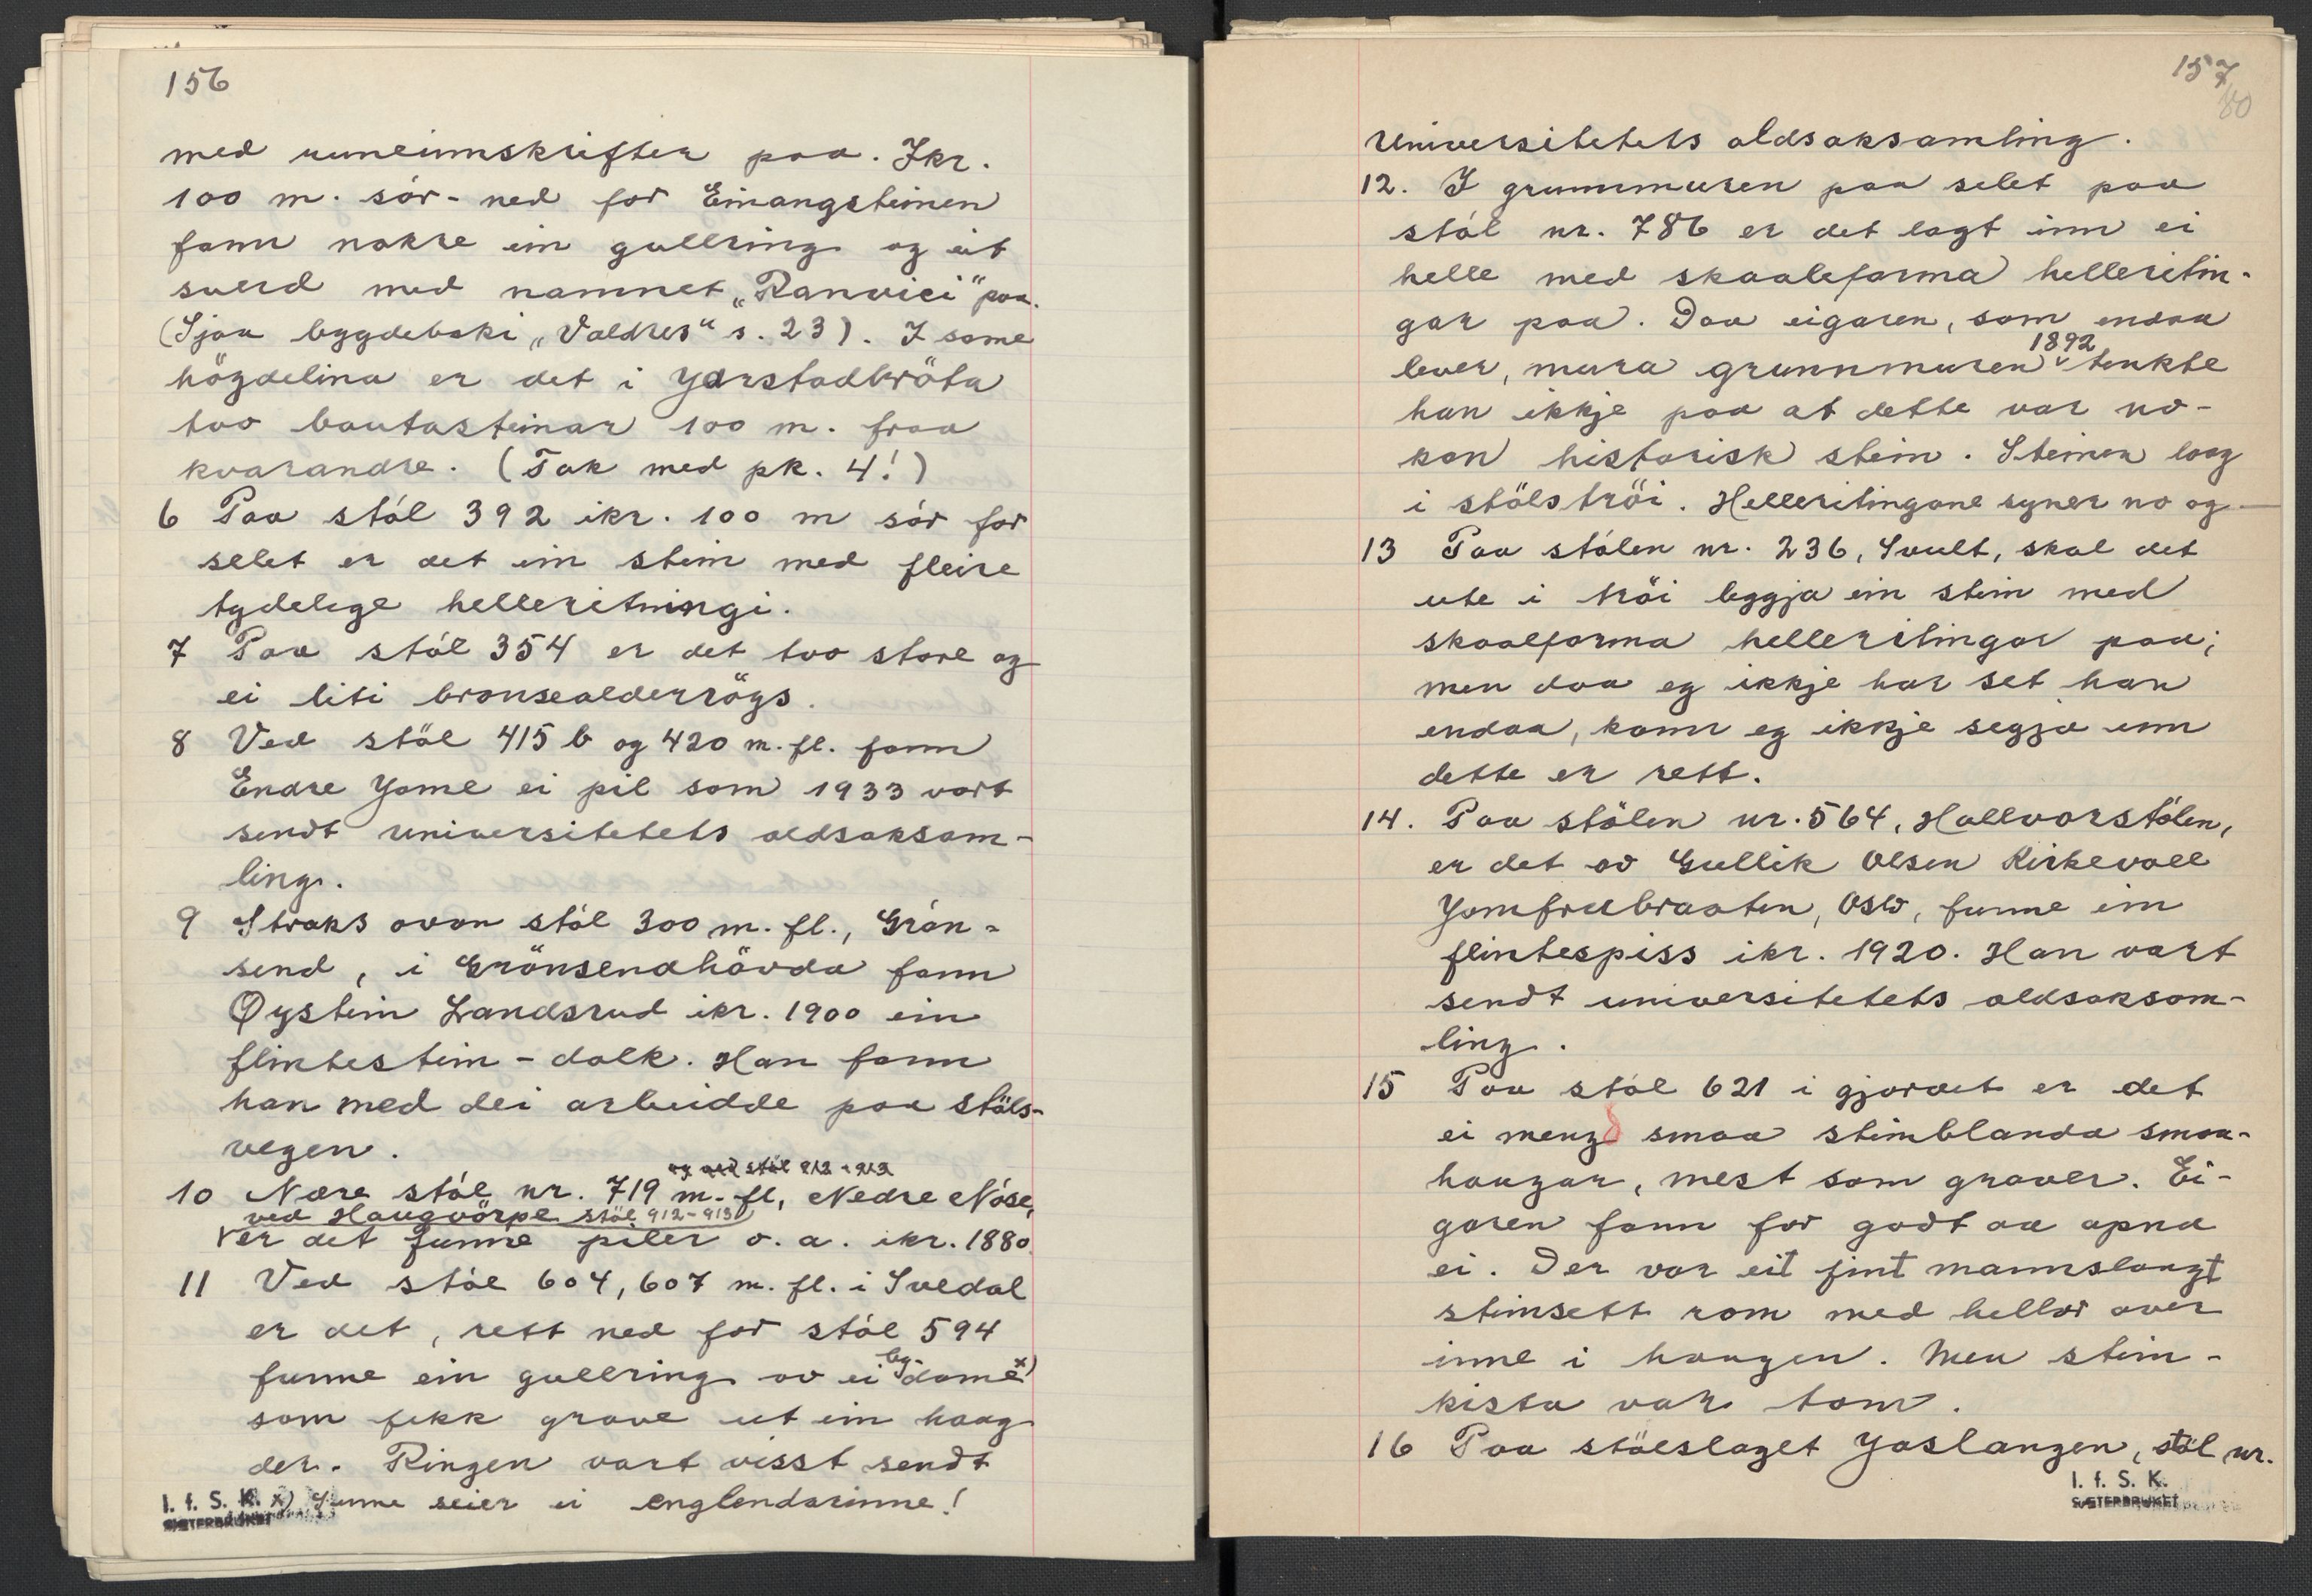 156
med runeinnskrifter paa. Ikr.
100 m. sør-ned for Einangsteinen
fann nokre ein gullring og eit
sverd med namnet „Ranvici“ paa.
(Sjaa bygdeboki „Valdres“ s. 23). I same
högdelina er det i Gardstadbröta
tvo bautasteinar 100 m. fraa
kvarandre. (Tak med pk. 4!)
6 Paa stöl 392 ikr. 100 m sör for
selet er det ein stein med fleire
tydelege helleritningi.
7 Paa stöl 354 er det tvo store og
ei liti bronsealderrögs.
8 Ved stöl 415 b og 420 m. fl. fann
Endre Jome ei pil som 1933 vart
sendt universitetets oldsaksam-
ling.
9 Straks ovan stöl 300 m. fl., Grön-
send, i Grönsendhövda fann
Øystein Landsrud ikr. 1900 ein
flintestein-dolk. Han fann
han med dei arbeidde paa stöls-
vegen.
og ved stöl 912-913
10 Nære stöl nr. 719 m. fl, Nedre Nöse,
ved Haugvörpe stöl 912-913
er det funne piler o. a. ikr. 1880.
11 Ved stöl 604, 607 m. fl. i Svedal
er det, rett ned for stöl 594
funne ein gullring av ei by-dame x)
som fekk grave ut ein haug
der. Ringen vart visst sendt
I. f. S. K. x) Sume seier ei englendarinne!
SÆTERBRUKET
157
80
Universitetets oldsaksamling.
12. I grunnmuren paa selet paa
stöl nr. 786 er det lagt inn ei
helle med skaaleforma helleritin-
gar paa. Daa eigaren, som endaa
1892
lever, mura grunnmuren v tenkte
han ikkje paa at dette var no-
kon historisk stein. Steinen laag
i stölströi. Helleritingane syner no og
13 Paa stölen nr. 236, Svult, skal det
ute i tröi leggja ein stein med
skaalforma helleritingar paa;
men daa eg ikkje har set han
endaa, kann eg ikkje segja um
dette er rett.
14. Paa stölen nr. 564, Hallvorstölen,
er det av Gullik Olsen Kirkevoll
Jomfrubraaten, Oslo, funne ein
flintespiss ikr. 1920. Han vart
sendt universitetets oldsaksam-
ling.
15 Paa stöl 621 i gjordet er det
ei mengd smaa steinblanda smaa-
haugar, mest som graver. Ei-
garen fann for godt aa apna
ei. Der var eit fint mannslangt
steinsett rom med hellor over
inne i haugen. Men stein-
kista var tom.
16 Paa stölslaget Jaslangen, stöl nr.
I. f. S. K.
SÆTERBRUKET